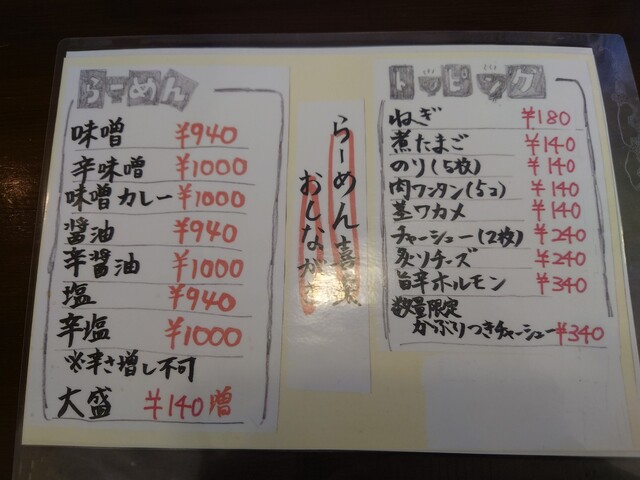 らーめん
味噌 ¥940
辛味噌 ¥1000
味噌カレー ¥1000
醤油 ¥940
辛醤油 ¥1000
塩 ¥940
辛塩 ¥1000
※辛さ増し不可
大盛 ¥140増
らーめん喜
おしながき
トッピング
ねぎ ¥180
煮たまご ¥140
のり(5枚) ¥140
肉ワンタン(5コ) ¥140
茎ワカメ ¥140
チャーシュー(2枚) ¥240
炙りチーズ ¥240
旨辛ホルモン ¥340
数量限定
かぶりつきチャーシュー ¥340